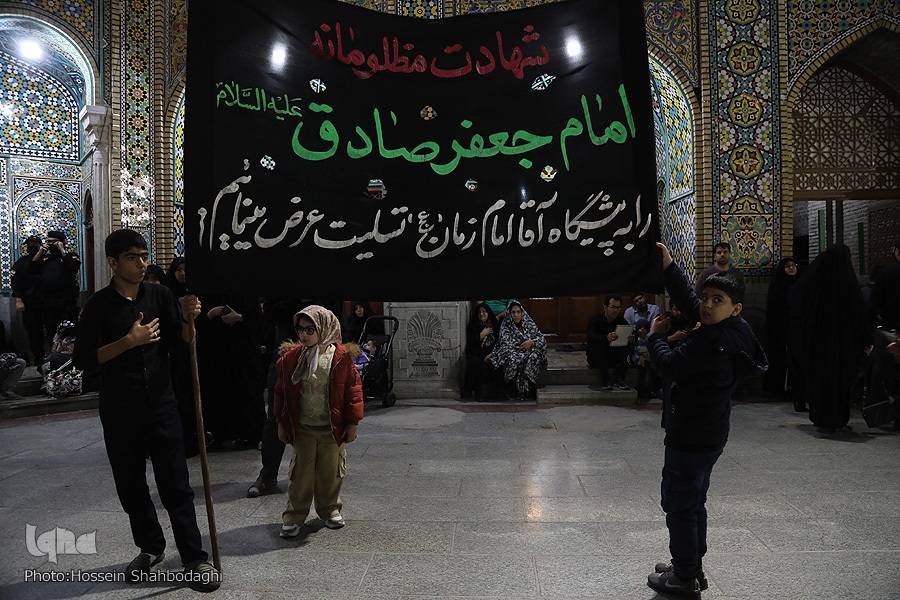 شهادت مظلومانه
امام جعفر صادق علیه السلام
را به پیشگاه آقا امام زمان (عج) تسلیت عرض مینمائیم
iqna
Photo:Hossein Shahbodaghi